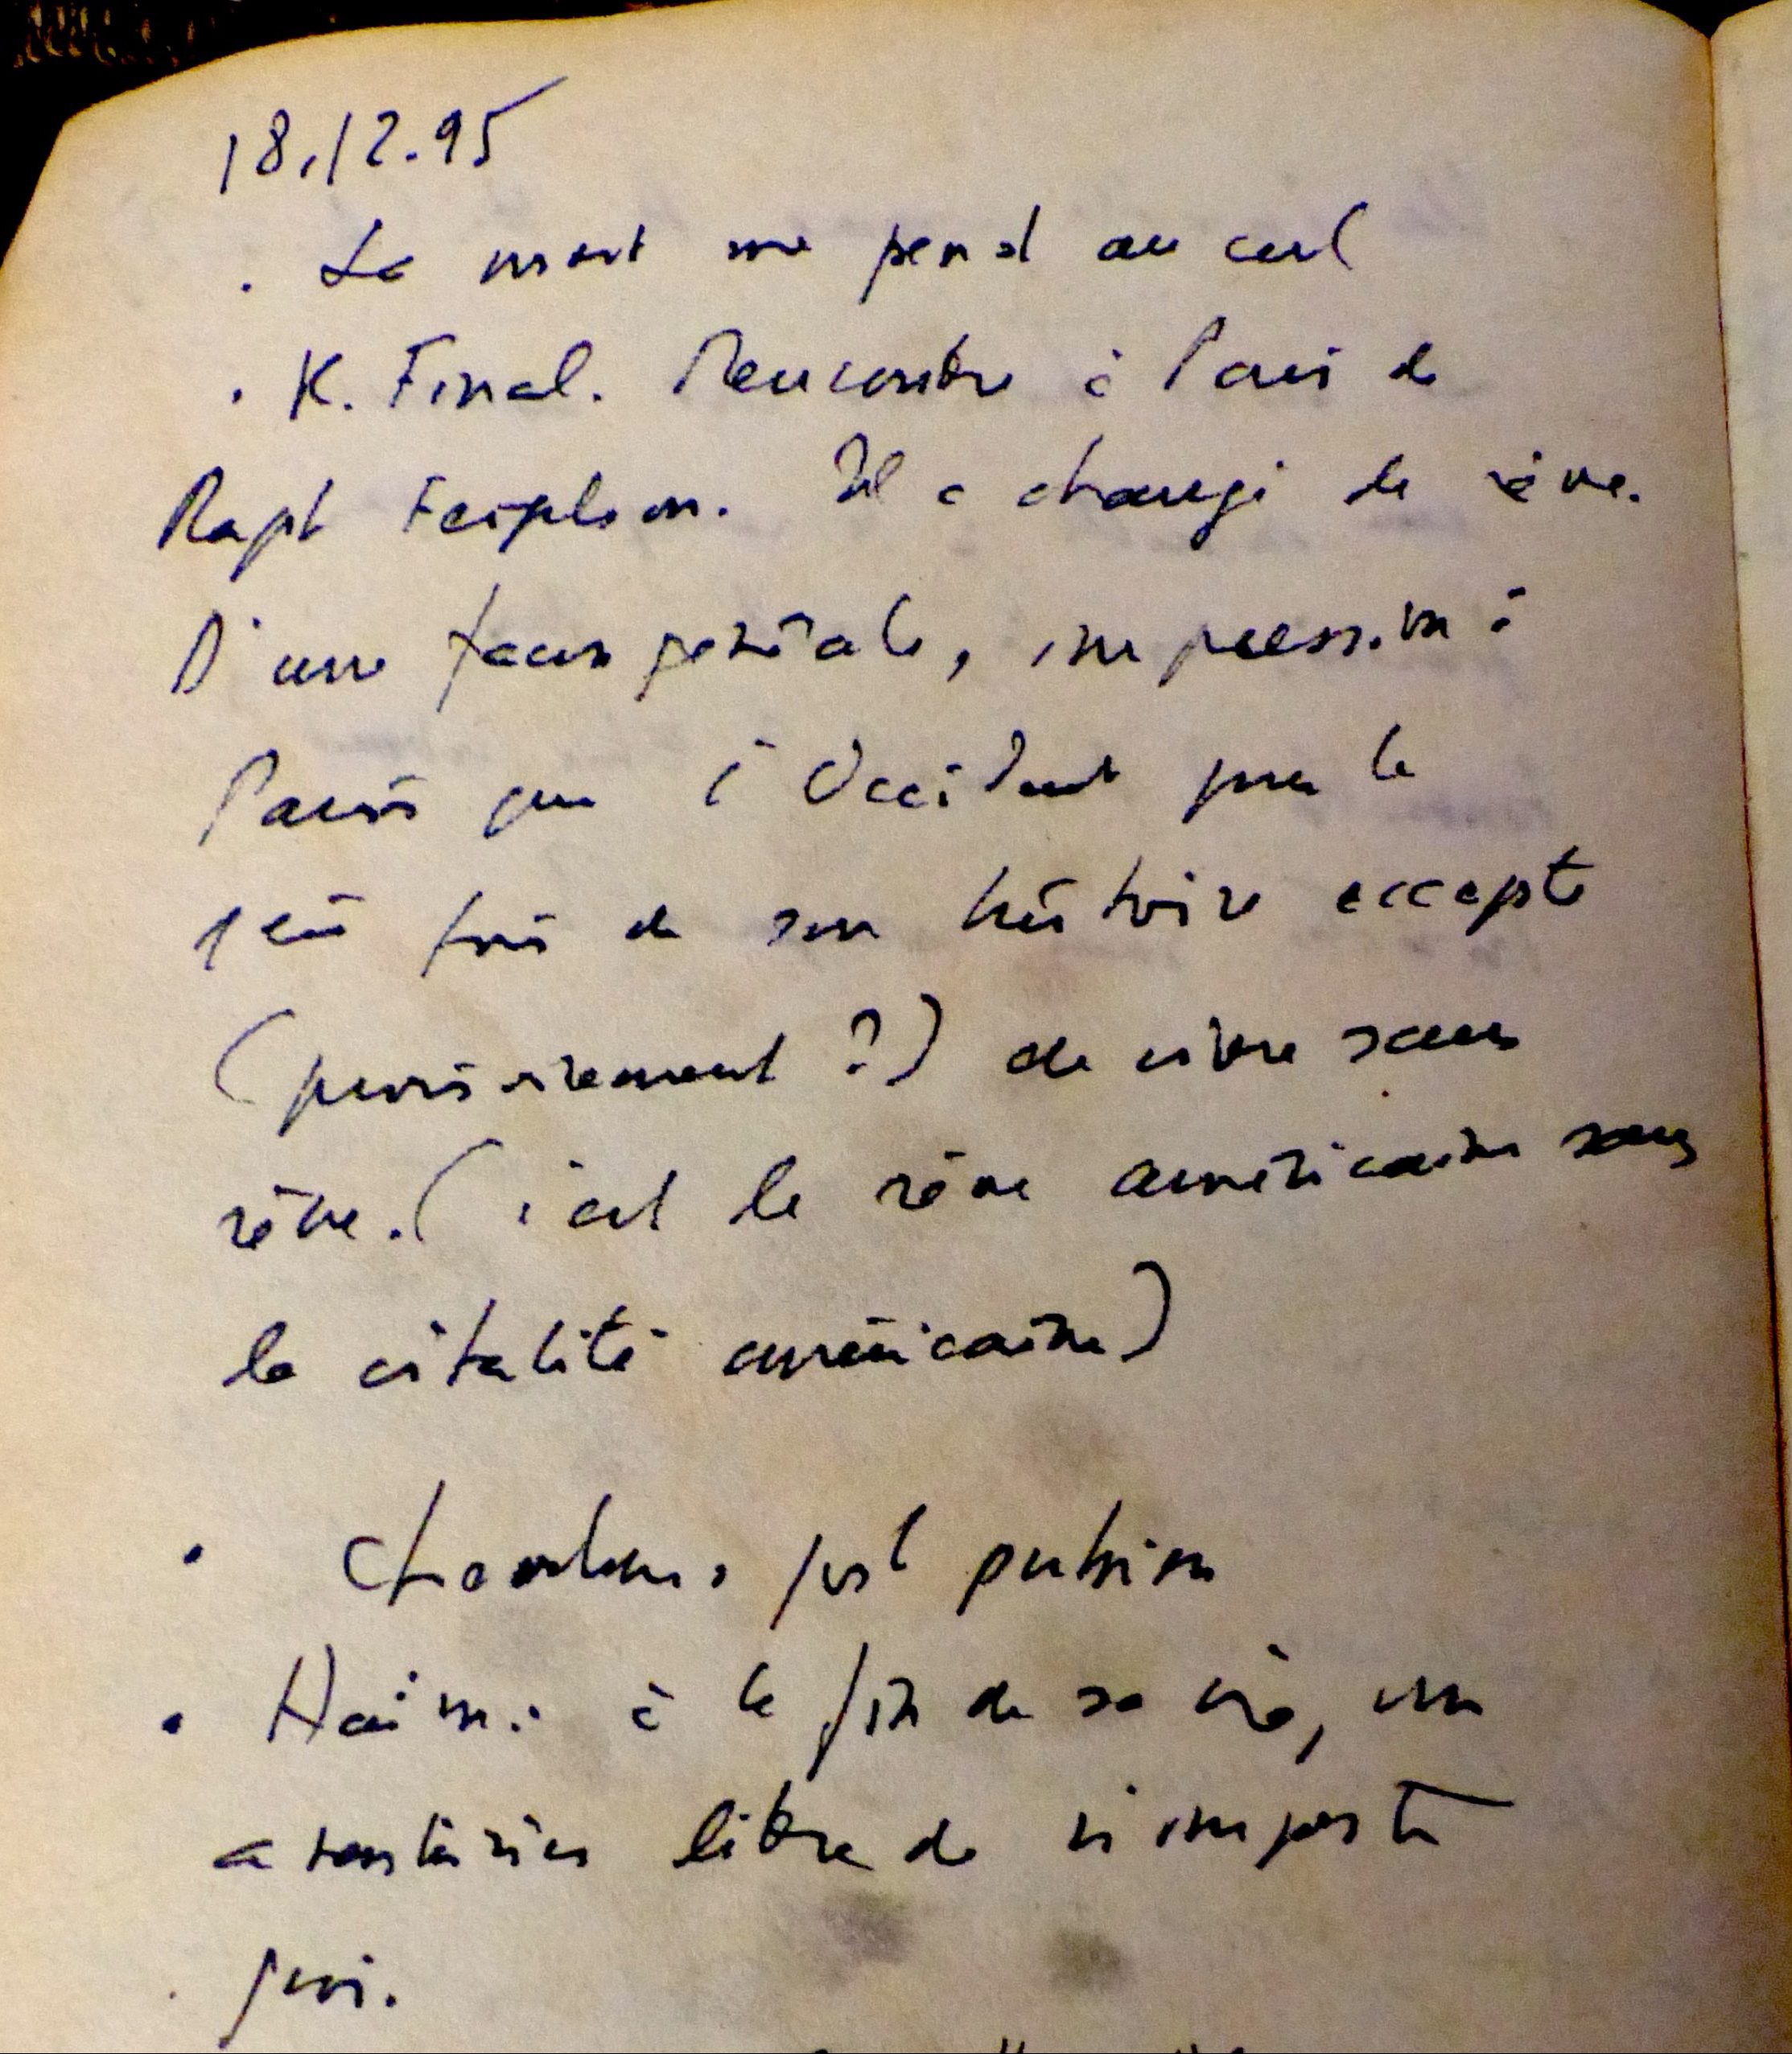 18.12.95
. La mort me pend au cul
. K. Final. Rencontre à Paris de
Raph . Il a changé de rêve.
D'une façon générale, impression à
Paris que l'Occident pour la
1ère fois de son histoire accepte
(provisoirement ?) de vivre sans
rêve. (c'est le rêve américain sans
la vitalité américaine)
. post pulsion
. Haïm : à la fin de sa vie, un
libre de n'importe
quoi.